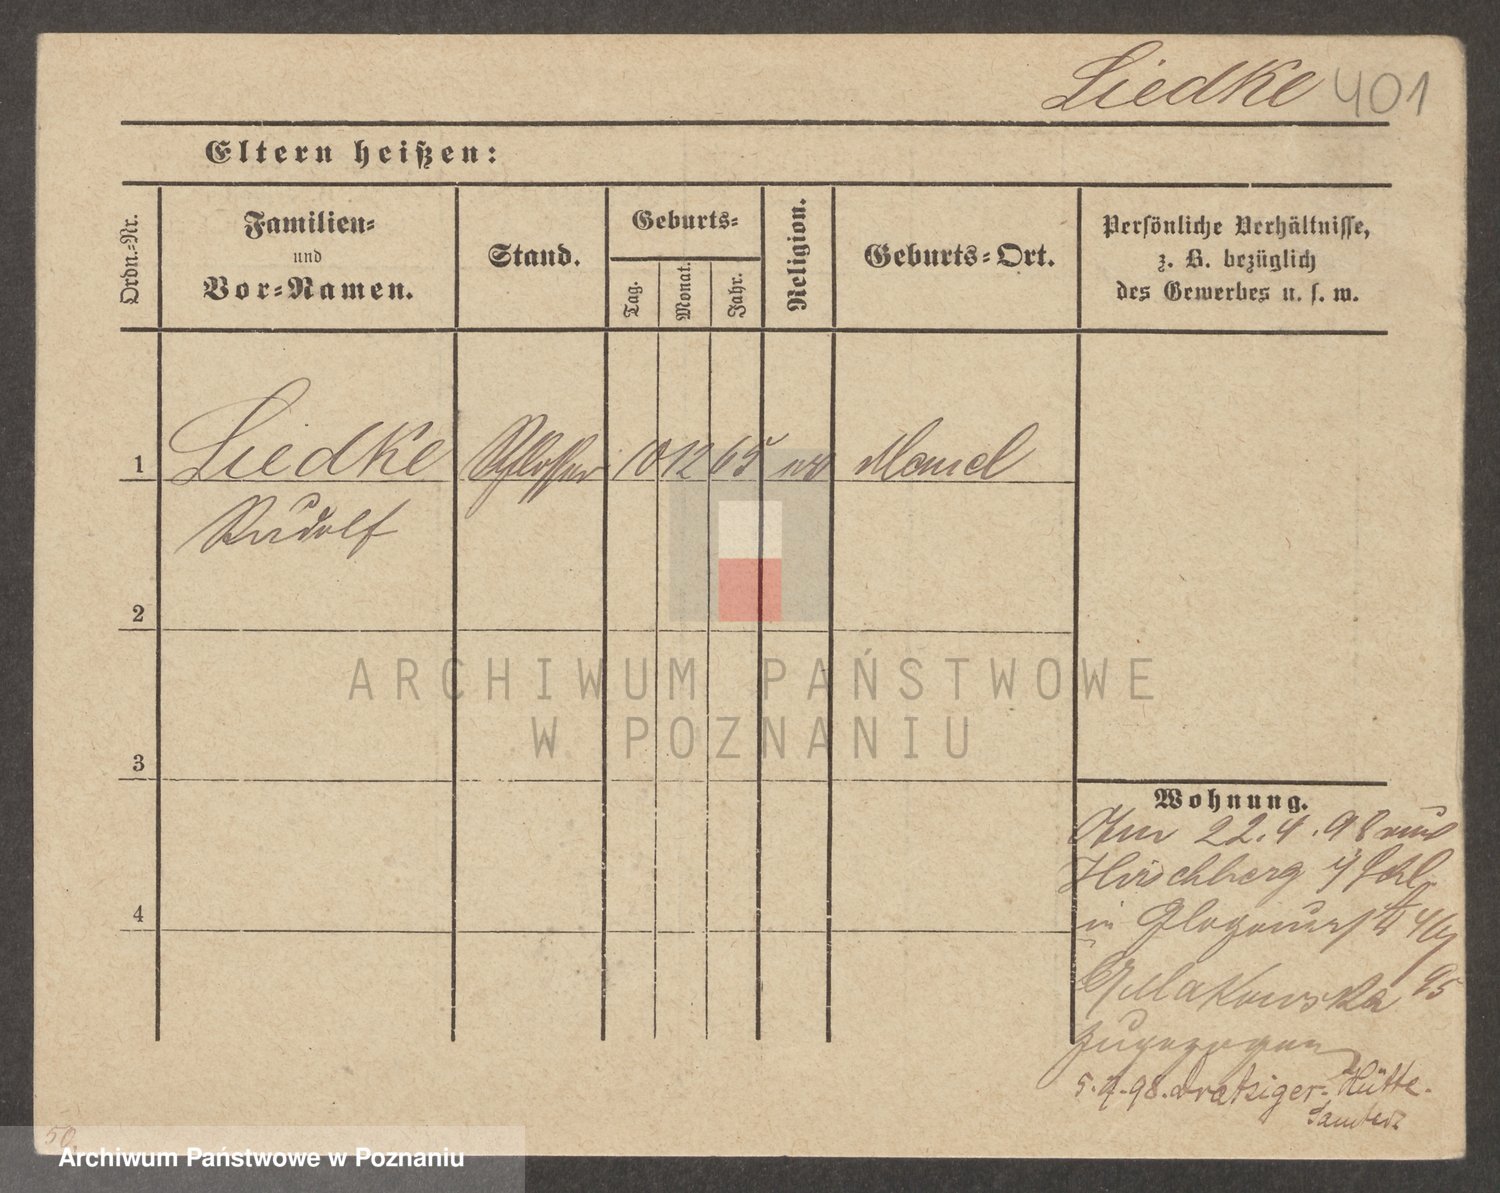 Liedke 401
Eltern heißen:
Ordn.-Nr.
Familien-
und
Vor-Namen.
Stand.
Geburts-
Tag.
Monat.
Jahr.
Religion.
Geburts-Ort.
Persönliche Verhältnisse,
z. B. bezüglich
des Gewerbes u. s. w.
1 Liedke Schlosser 10 12 65 ev Memel
Rudolf
2
3
4
ARCHIWUM PAŃSTWOWE
W POZNANIU
Wohnung.
Am 22.4.98 aus
Hirschberg i/Schl
in Glogauerst
Makowska 95
zugezogen
5. 98. Dratziger-Hütte.
50.
Archiwum Państwowe w Poznaniu